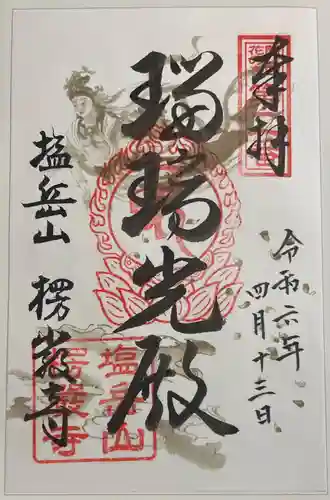 奉拝
令和六年
四月十三日
瑠璃光殿
塩岳山
楞嚴寺
塩岳山
楞嚴寺